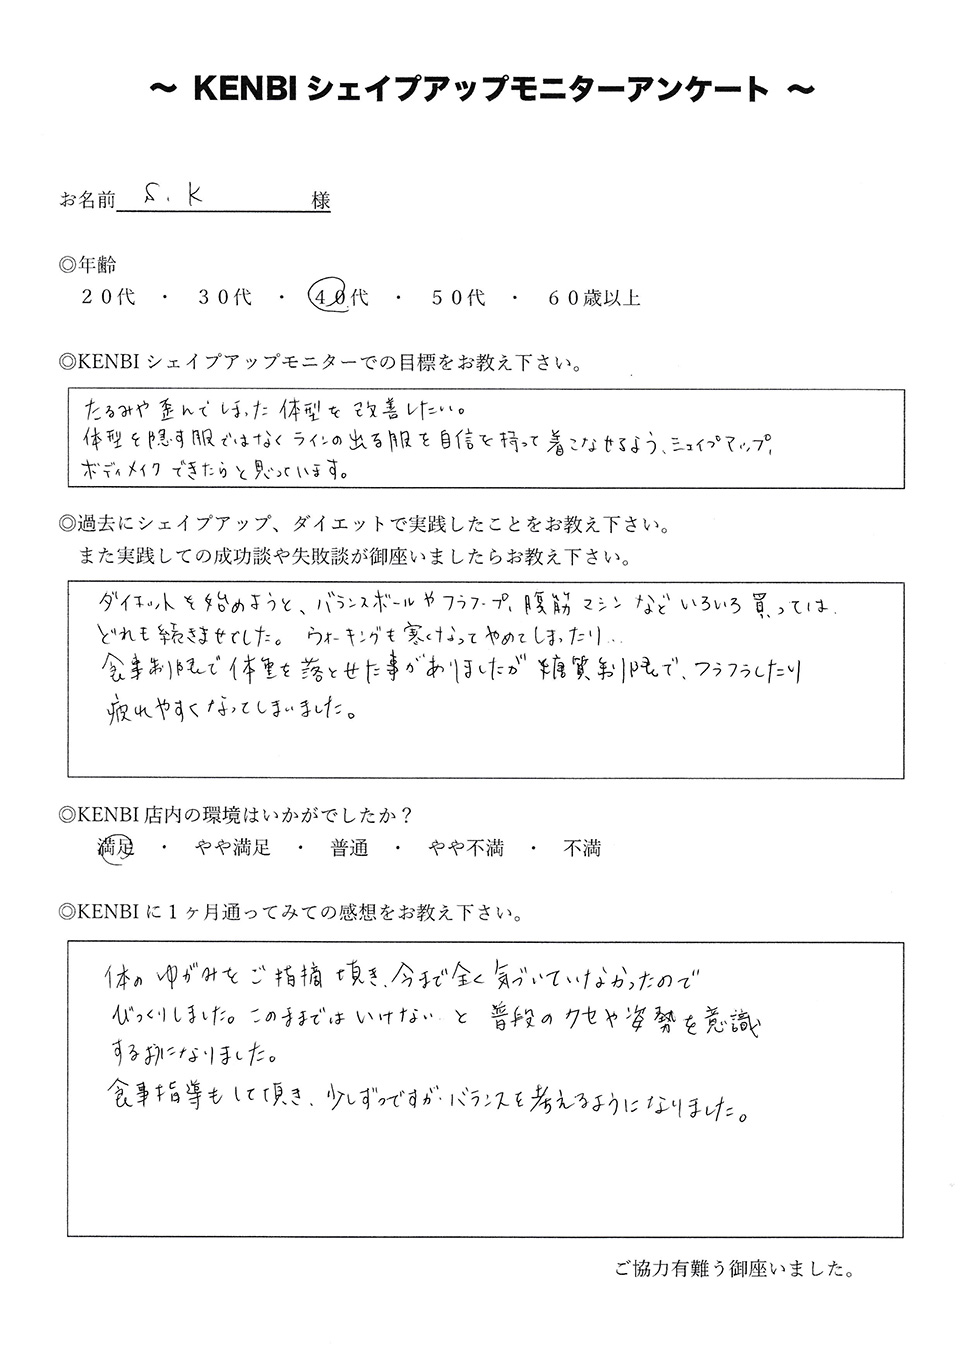 ～ KENBI シェイプアップモニターアンケート ～
お名前 S.K 様
◎年齢
２０代 ・ ３０代 ・ ４０代 ・ ５０代 ・ ６０歳以上
◎KENBI シェイプアップモニターでの目標をお教え下さい。
たるみや歪んでしまった体型を改善したい。
体型を隠す服ではなくラインの出る服を自信を持って着こなせるよう、シェイプアップ、
ボディメイクできたらと思っています。
◎過去にシェイプアップ、ダイエットで実践したことをお教え下さい。
また実践しての成功談や失敗談が御座いましたらお教え下さい。
ダイエットを始めようと、バランスボールやフラフープ、腹筋マシンなどいろいろ買っては
どれも続きませでした。ウォーキングも寒くなってやめてしまったり..
食事制限で体重を落とせた事がありましたが糖質制限で、フラフラしたり
疲れやすくなってしまいました。
◎KENBI 店内の環境はいかがでしたか？
満足 ・ やや満足 ・ 普通 ・ やや不満 ・ 不満
◎KENBI に１ヶ月通ってみての感想をお教え下さい。
体のゆがみをご指摘頂き、今まで全く気づいていなかったので
びっくりしました。このままではいけない と 普段のクセや姿勢を意識
するようになりました。
食事指導もして頂き、少しずつですがバランスを考えるようになりました。
ご協力有難う御座いました。